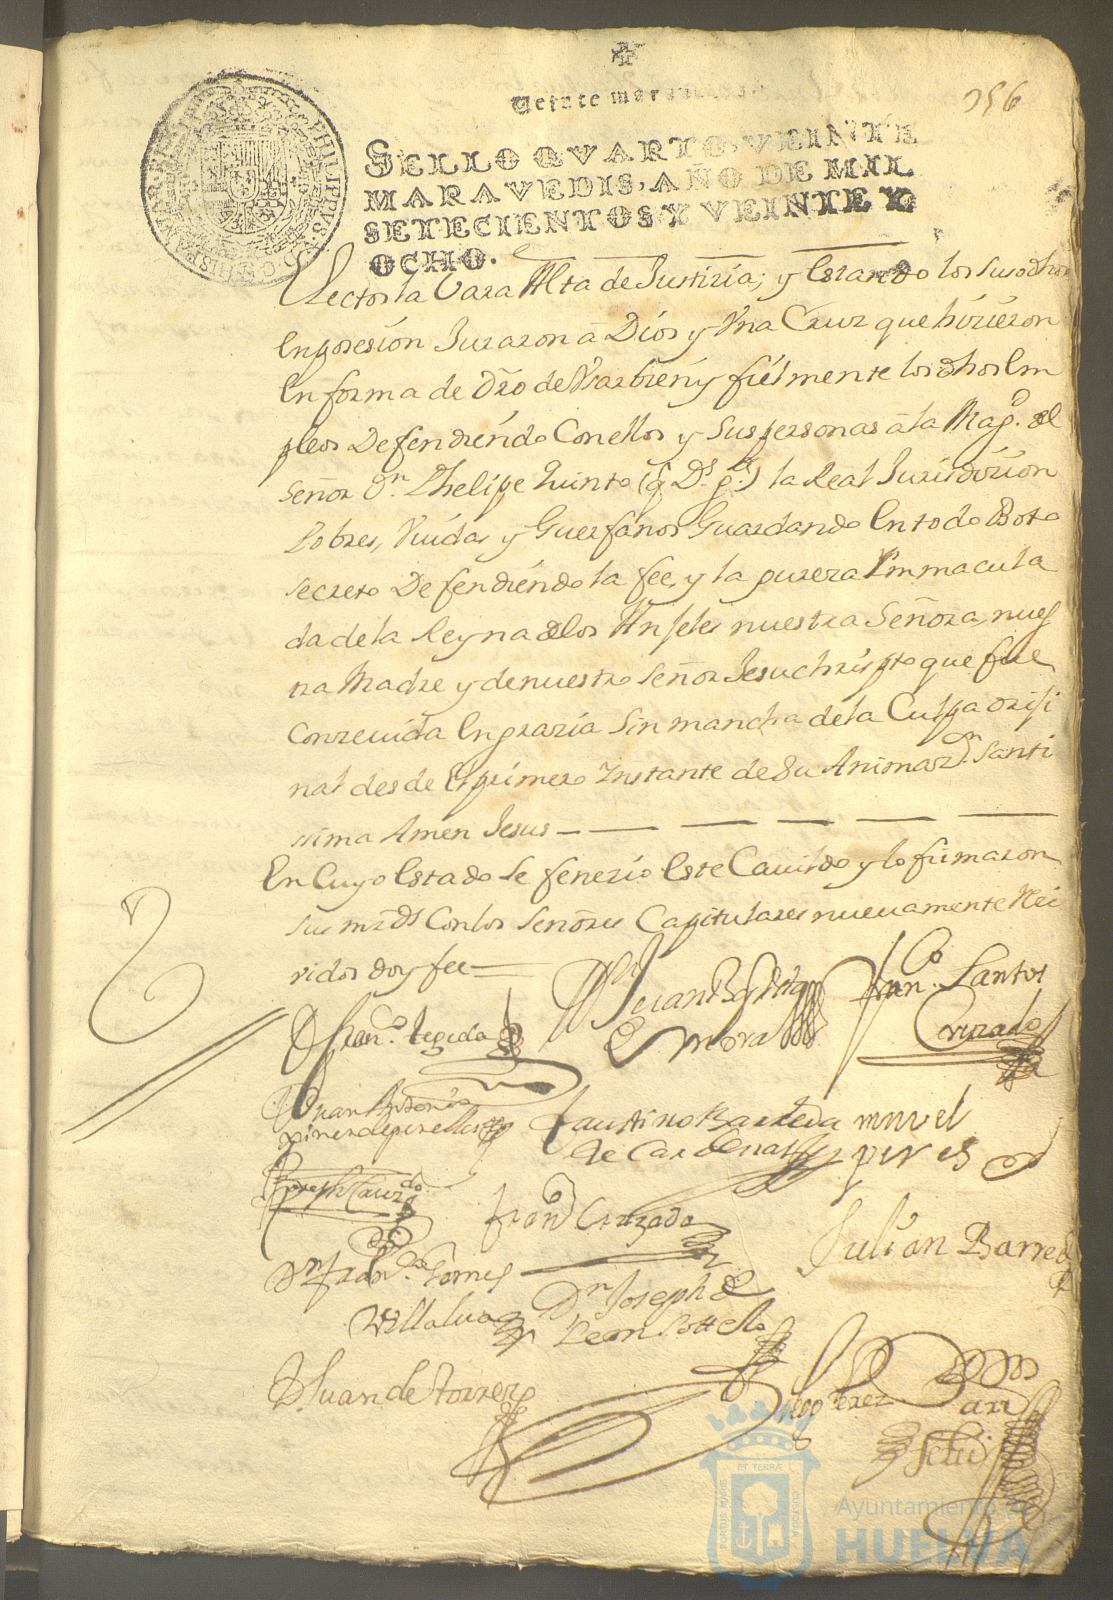 Veinte maravedis
256
SELLO QVARTO, VEINTE
MARAVEDIS, AÑO DE MIL
SETECIENTOS Y VEINTE Y
OCHO.
PHILIPPVS
HISPANIAR
Rector la Vara Alta de Justizia; y Estando los susodhos
En posesion Juraron â Dios y Vna Cruz que hizieron
En forma de dro de Vsar bien y fielmente los dhos Em
pleos Defendiendo Con ellos y sus personas â la Magd. del
Señor Dn. Phelipe Quinto (q Ds. ge.) la Real Jurisdizion
Pobres, Viudas y Guerfanos Guardando En todo Boto
secreto Defendiendo la fee, y la pureza Ymmacula
da de la Reyna de los Anjeles nuestra Señora, nues
tra Madre y de nuestro Señor Jesuchristo que fue
Conzeuida En grazia Sin mancha de la Culpa oriji
nal desde El primero Instante de Su Animazon. Santi
sima Amen Jesus
En Cuyo Estado se fenezio Este Cauildo y lo firmaron
sus mrzds Con los Señores Capitulares nueuamente Rezi
vidos doy fee
Dn Juan Bapta
de Mora
Franco. Santos
Cruzado
D Franco. Tejeda
Juan Antonio
Faustino Barreda
de Cardenas
mnvel
pires
Franco Cruzado
Julian Barreda
Dn Franco. Gomes
Villalua
Dn Joseph de
Leon Sottelo
D Juan de Torres
Diego Perez
PORTUS MARIS
ET TERRÆ
CUSTODIA
Ayuntamiento de
HUELVA